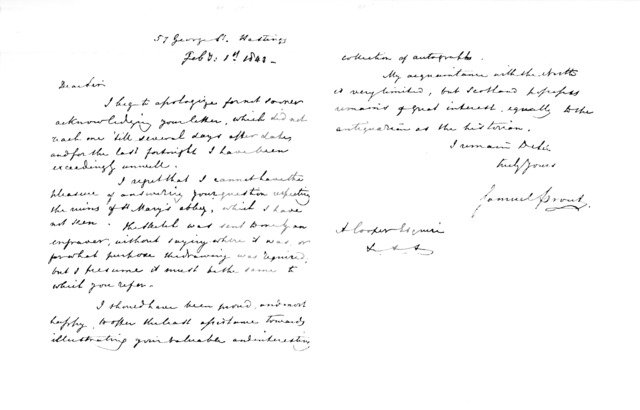 57 George St. Hastings
Feby. 1st 1840 -
Dear Sir
I beg to apologize for not sooner
acknowledging your letter, which did not
reach me till several days after date,
and for the last fortnight I have been
exceedingly unwell.
I regret that I cannot have the
pleasure of answering your question respecting
the ruins of St Mary's abbey, which I have
not seen. The sketch was sent to me by an
engraver, without saying where it was, or
for what purpose the drawing was required,
but I presume it must be the same to
which you refer.
I should have been proud, and most
happy, to offer the least assistance towards
illustrating your valuable and interesting
collection of autographs.
My acquaintance with the North
is very limited, but Scotland possesses
remains of great interest, equally to the
antiquarian as the historian.
I remain Dr Sir
truly yours
Samuel Prout.
A Cooper Esquire